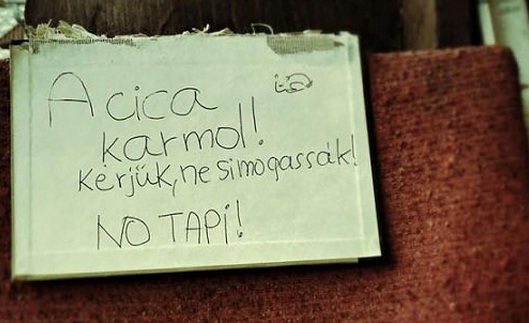 A cica
karmol!
Kérjük, ne simogassák!
NO TAPI!